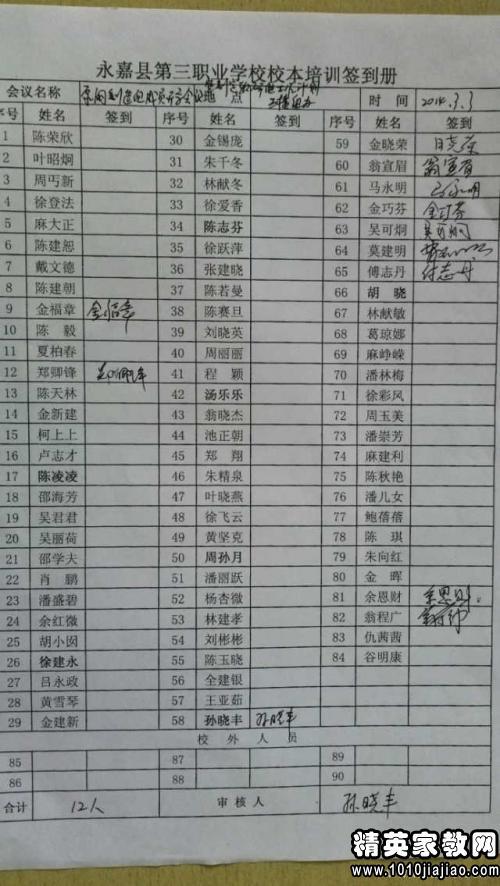 永嘉县第三职业学校校本培训签到册
会议名称 地点 时间 2014.3.3
序号 姓名 签到 序号 姓名 签到 序号 姓名 签到
1 陈荣欣 30 金锡庞 59 金晓荣
2 叶昭炯 31 朱千冬 60 翁宣眉 翁宣眉
3 周丐新 32 林献冬 61 马永明 马永明
4 徐登法 33 徐爱香 62 金巧芬 金巧芬
5 麻大正 34 陈志芬 63 吴可炯 吴可炯
6 陈建恕 35 徐跃萍 64 莫建明
7 戴文德 36 张建晓 65 傅志丹 付志丹
8 陈建朝 37 陈若曼 66 胡晓
9 金福章 金福章 38 陈赛旦 67 林献敏
10 陈毅 39 刘晓英 68 葛琼娜
11 夏柏春 40 周丽丽 69 麻峥嵘
12 郑卿锋 41 程颖 70 潘林梅
13 陈天林 42 汤乐乐 71 徐彩凤
14 金新建 43 翁晓杰 72 周玉美
15 柯上上 44 池正朝 73 潘崇芳
16 卢志才 45 郑翔 74 麻建利
17 陈凌凌 46 朱精泉 75 陈秋艳
18 邵海芳 47 叶晓燕 76 潘儿女
19 吴君君 48 徐飞云 77 鲍蓓蓓
20 吴丽荷 49 黄坚克 78 陈琪
21 邵学夫 50 周孙月 79 朱向红
22 肖鹏 51 潘丽跃 80 金晖
23 潘盛碧 52 杨杏微 81 余恩财 余恩财
24 余红微 53 林建孝 82 翁程广
25 胡小囡 54 刘彬彬 83 仇茜茜
26 徐建永 55 陈玉晓 84 谷明康
27 吕永政 56 全建银
28 黄雪琴 57 王亚茹
29 金建新 58 孙晓丰 孙晓丰
校外人员
85 87 89
86 88 90
合计 12人 审核人 孙晓丰
精英家教网
www.1010jiajiao.com